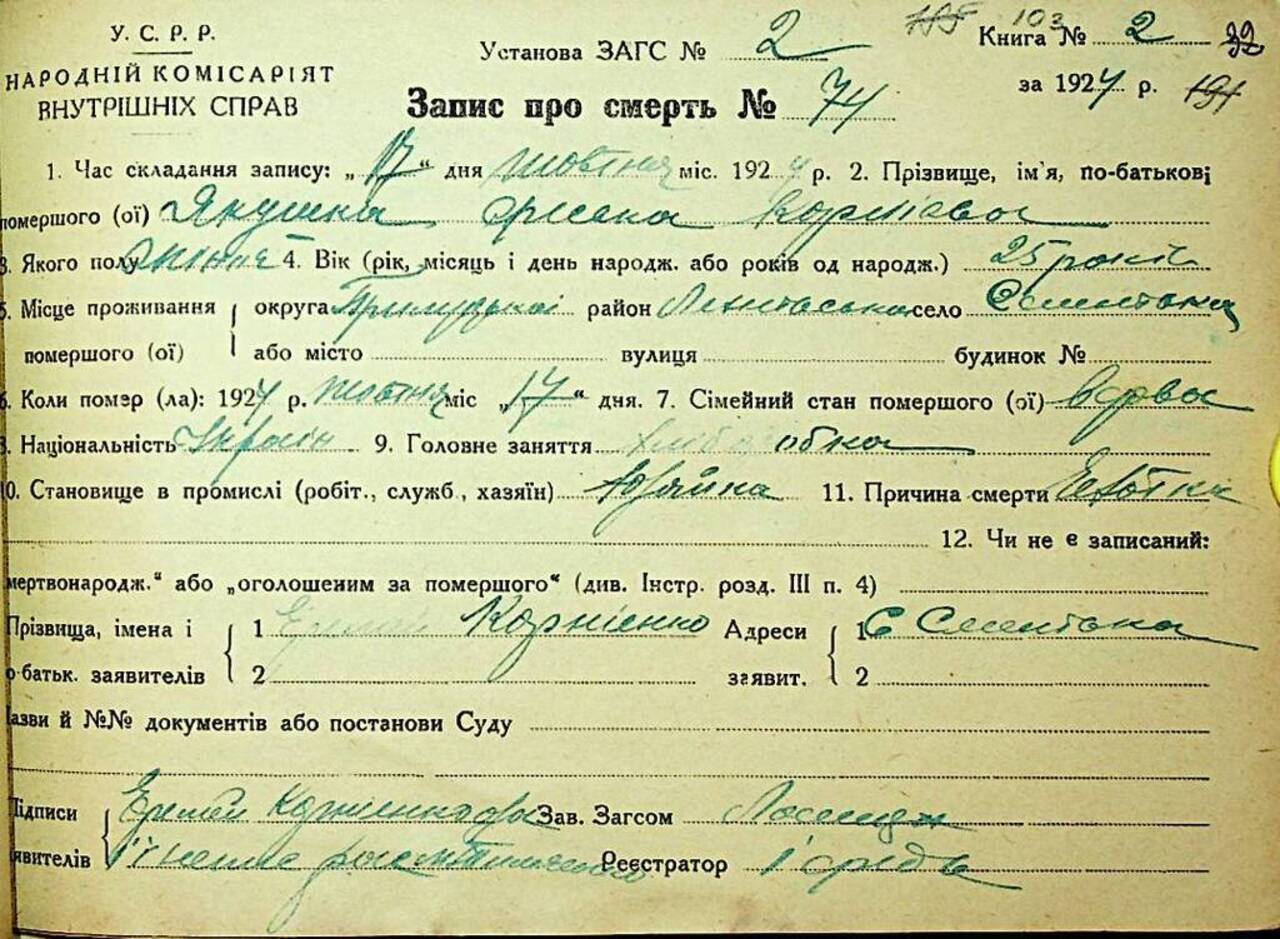 У. С. Р. Р.
НАРОДНІЙ КОМІСАРІЯТ
ВНУТРІШНІХ СПРАВ
Установа ЗАГС № 2
195 103 Книга № 2 32
за 1924 р. 191
Запис про смерть № 74
1. Час складання запису: „17“ дня жовтня міс. 1924 р. 2. Прізвище, ім'я, по-батькові
помершого (ої) Якушка
3. Якого полу 4. Вік (рік, місяць і день народж. або років од народж.) 25 років
5. Місце проживання округа Прилуцької район село
помершого (ої) або місто вулиця будинок №
6. Коли помер (ла): 1924 р. жовтня міс „17“ дня. 7. Сімейний стан помершого (ої) вдова
8. Національність Україн 9. Головне заняття
10. Становище в промислі (робіт., служб., хазяїн) 11. Причина смерти
12. Чи не є записаний:
мертвонародж.“ або „оголошеним за помершого“ (див. Інстр. розд. III п. 4)
Прізвища, імена і 1 Еремей Корниенко Адреси 1 С
о-батьк. заявителів 2 заявит. 2
азви й №№ документів або постанови Суду
Підписи Еремей Зав. Загсом
явителів Реєстратор